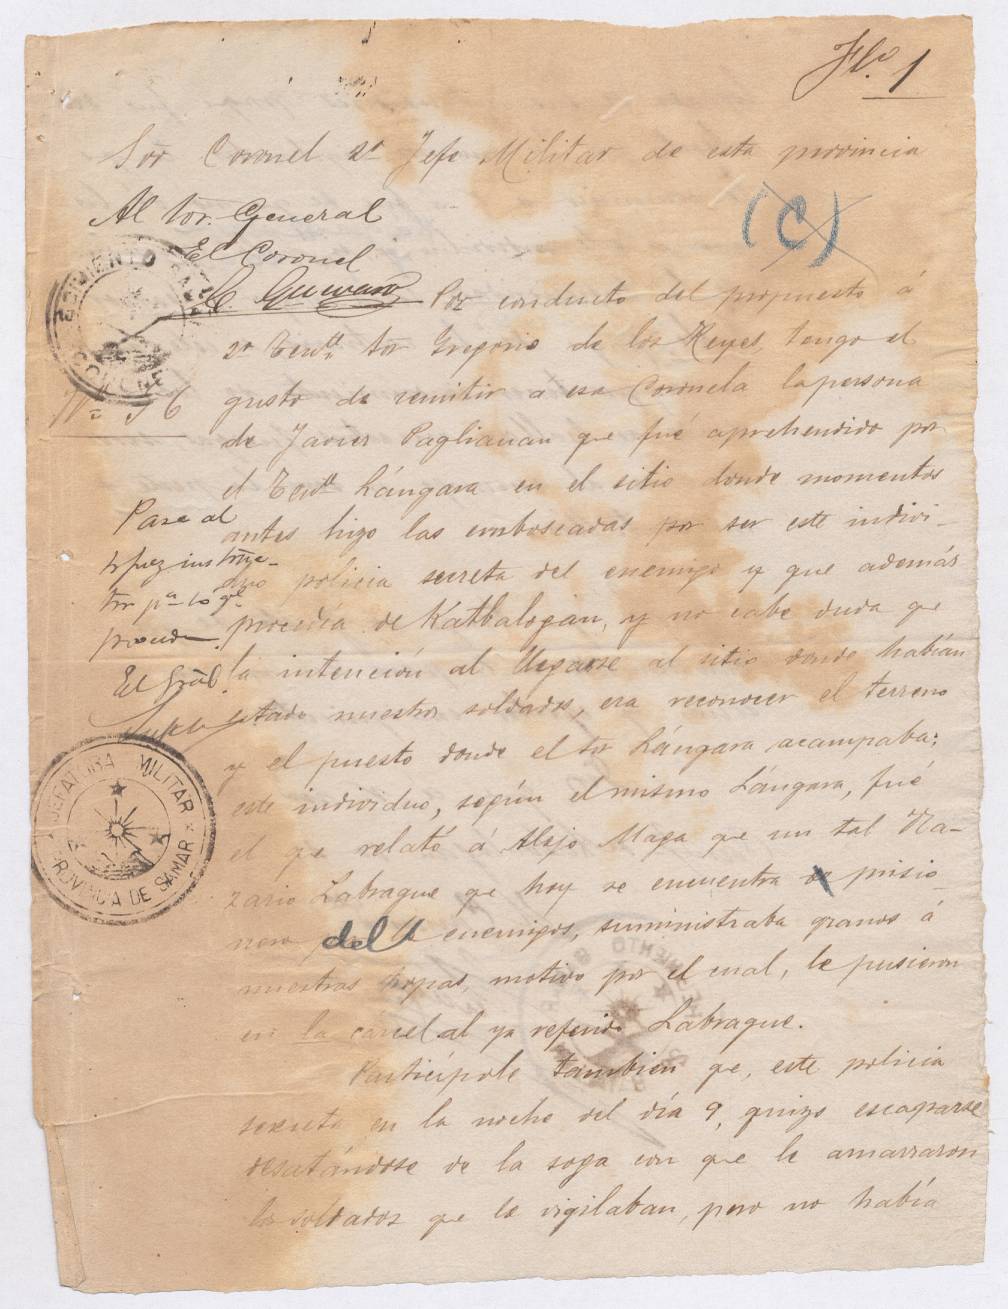 Flo. 1
Sor Coronel 2º Jefe Militar de esta provincia
Al Sor. General
El Coronel
C. Guevara
(C)
Nº 36
Por conducto del propuesto á
2º Tente Sor Gregorio de los Reyes, tengo el
gusto de remitir a esa Coronela la persona
de Javier Pagliauan que fué aprehendido por
el Tente Lángara en el sitio donde momentos
antes hizo las emboscadas por ser este indivi-
duo policia secreta del enemigo y que además
procedia de Katbalogan, y no cabe duda que
la intención al llegarse al sitio donde habían
estado nuestros soldados, era reconocer el terreno
y el puesto donde el Sor Lángara acampaba;
este individuo, según el mismo Lángara, fué
el que relató á Alejo Maga que un tal Na-
zario Labrague que hoy se encuentra prisio-
nero del enemigos, suministraba granos á
nuestras tropas, motivo por el cual, le pusieron
en la carcel al ya referido Labrague.
Participole tambien que, este policia
secreta en la noche del día 9, quizo escaparse
desatándose de la soga con que le amarraron
los soldados que le vigilaban, pero no había
Pase al
Juez instruc-
tor pª lo qe
proceda
El Gral
JEFATURA MILITAR
PROVINCIA DE SAMAR